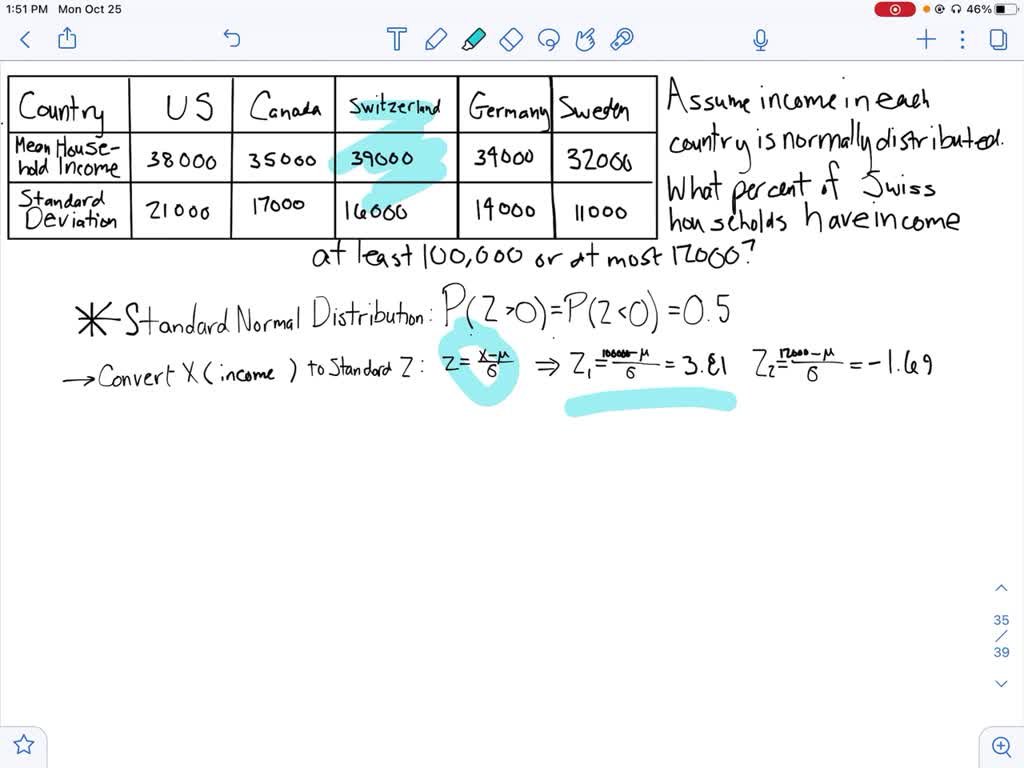 1:51 PM Mon Oct 25 46%
Country US Canada Switzerland Germany Sweden
Mean House-
hold Income 38000 35000 39000 34000 32000
Standard
Deviation 21000 17000 16000 14000 11000
Assume income in each
country is normally distributed.
What percent of Swiss
households have income
at least 100,000 or at most 12000?
* Standard Normal Distribution: P(Z>0)=P(Z<0)=0.5
→ Convert X (income) to Standard Z: Z = X-μ/σ ⇒ Z₁ = 100000-μ/σ = 3.81 Z₂ = 12000-μ/σ = -1.69
35
/
39